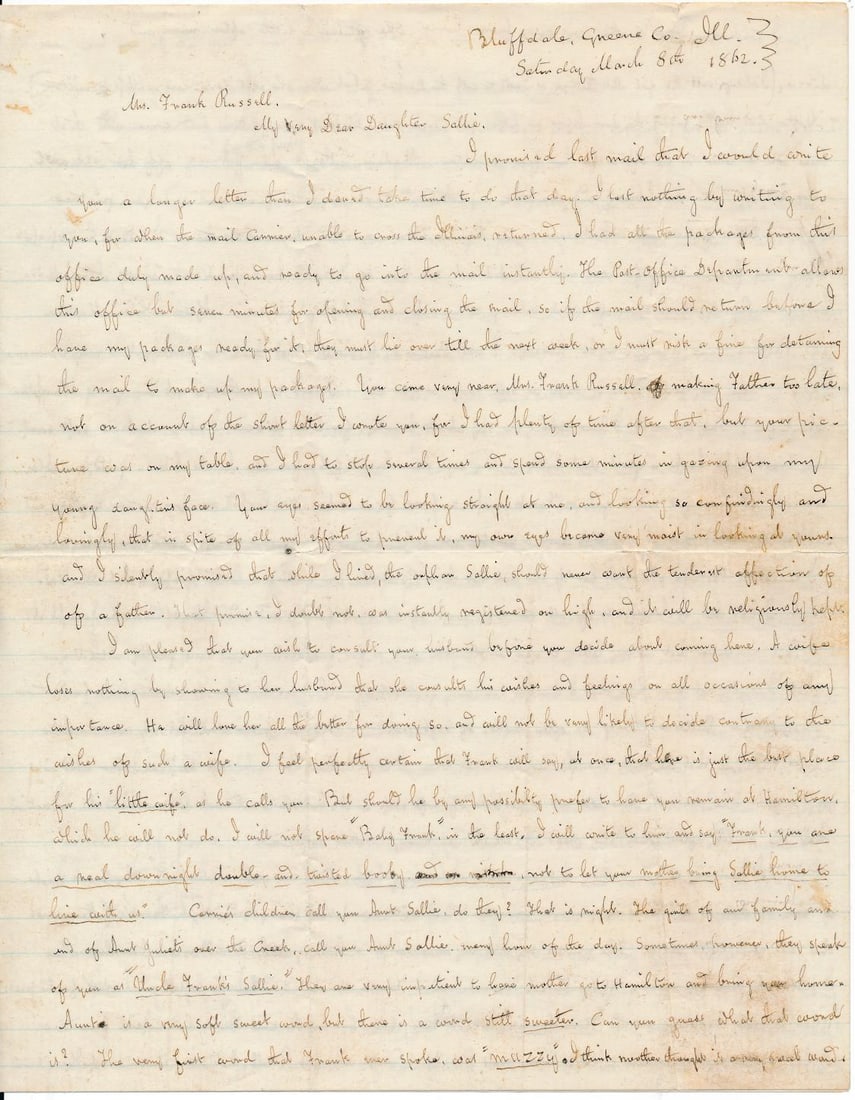 Bluffdale, Greene Co. Ill.
Saturday March 8th 1862.
Mrs. Frank Russell.
My Very Dear Daughter Sallie.
I promised last mail that I would write
you a longer letter than I dared take time to do that day. I lost nothing by writing to
you, for when the mail Carrier, unable to cross the Illinois, returned, I had all the packages from this
office duly made up, and ready to go into the mail instantly. The Post-Office Department allows
this office but seven minutes for opening and closing the mail, so if the mail should return before I
have my packages ready for it, they must lie over till the next week, or I must risk a fine for detaining
the mail to make up my packages. You came very near, Mrs. Frank Russell. making Father too late,
not on account of the short letter I wrote you, for I had plenty of time after that, but your pic-
ture was on my table, and I had to stop several times and spend some minutes in gazing upon my
young daughters face. Your eyes seemed to be looking straight at me, and looking so confidingly and
lovingly, that in spite of all my efforts to prevent it, my own eyes became very moist in looking at yours.
and I silently promised that while I lived, the orphan Sallie, should never want the tenderest affection of
of a father. That promise, I doubt not, was instantly registered on high, and it will be religiously kept.
I am pleased that you wish to consult your husband before you decide about coming here. A wife
loses nothing by showing to her husband that she consults his wishes and feelings on all occasions of any
importance. He will love her all the better for doing so, and will not be very likely to decide contrary to the
wishes of such a wife. I feel perfectly certain that Frank will say, at once, that here is just the best place
for his "little wife", as he calls you. But should he by any possibilty prefer to have you remain at Hamilton,
which he will not do, I will not spare "Baby Frank" in the least. I will write to him and say "Frank, you are
a real downright double-and twisted booby not to let your mother bring Sallie home to
live with us." Carrie's children call you Aunt Sallie, do they? That is right. The girls of our family and
and of Aunt Juliet's over the Creek, call you Aunt Sallie every hour of the day. Sometimes, however, they speak
of you as "Uncle Frank's Sallie." They are very impatient to have mother go to Hamilton and bring you home.
Aunt is a very soft sweet word, but there is a word still sweeter. Can you guess what that word
is? The very first word that Frank ever spoke, was "muzzy". I think mother thought it a very sweet word.